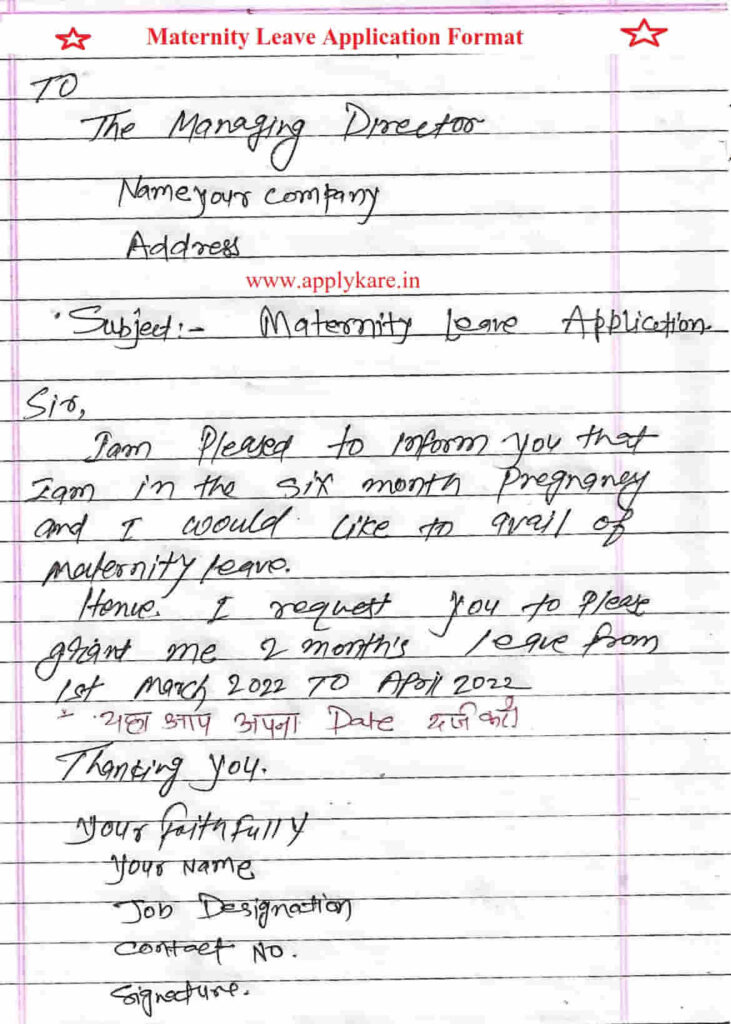 Maternity Leave Application Format
TO
The Managing Director
Name your company
Address
www.applykare.in
Subject:- Maternity Leave Application.
Sir,
I am Pleased to inform you that
I am in the six month Pregnancy
and I would like to avail of
maternity leave.
Hence. I request you to Please
grant me 2 month's leave from
1st March 2022 TO April 2022
* यहा आप अपना Date दर्ज करें।
Thanking you.
Your faithfully
Your Name
Job Designation
Contact No.
Signature.